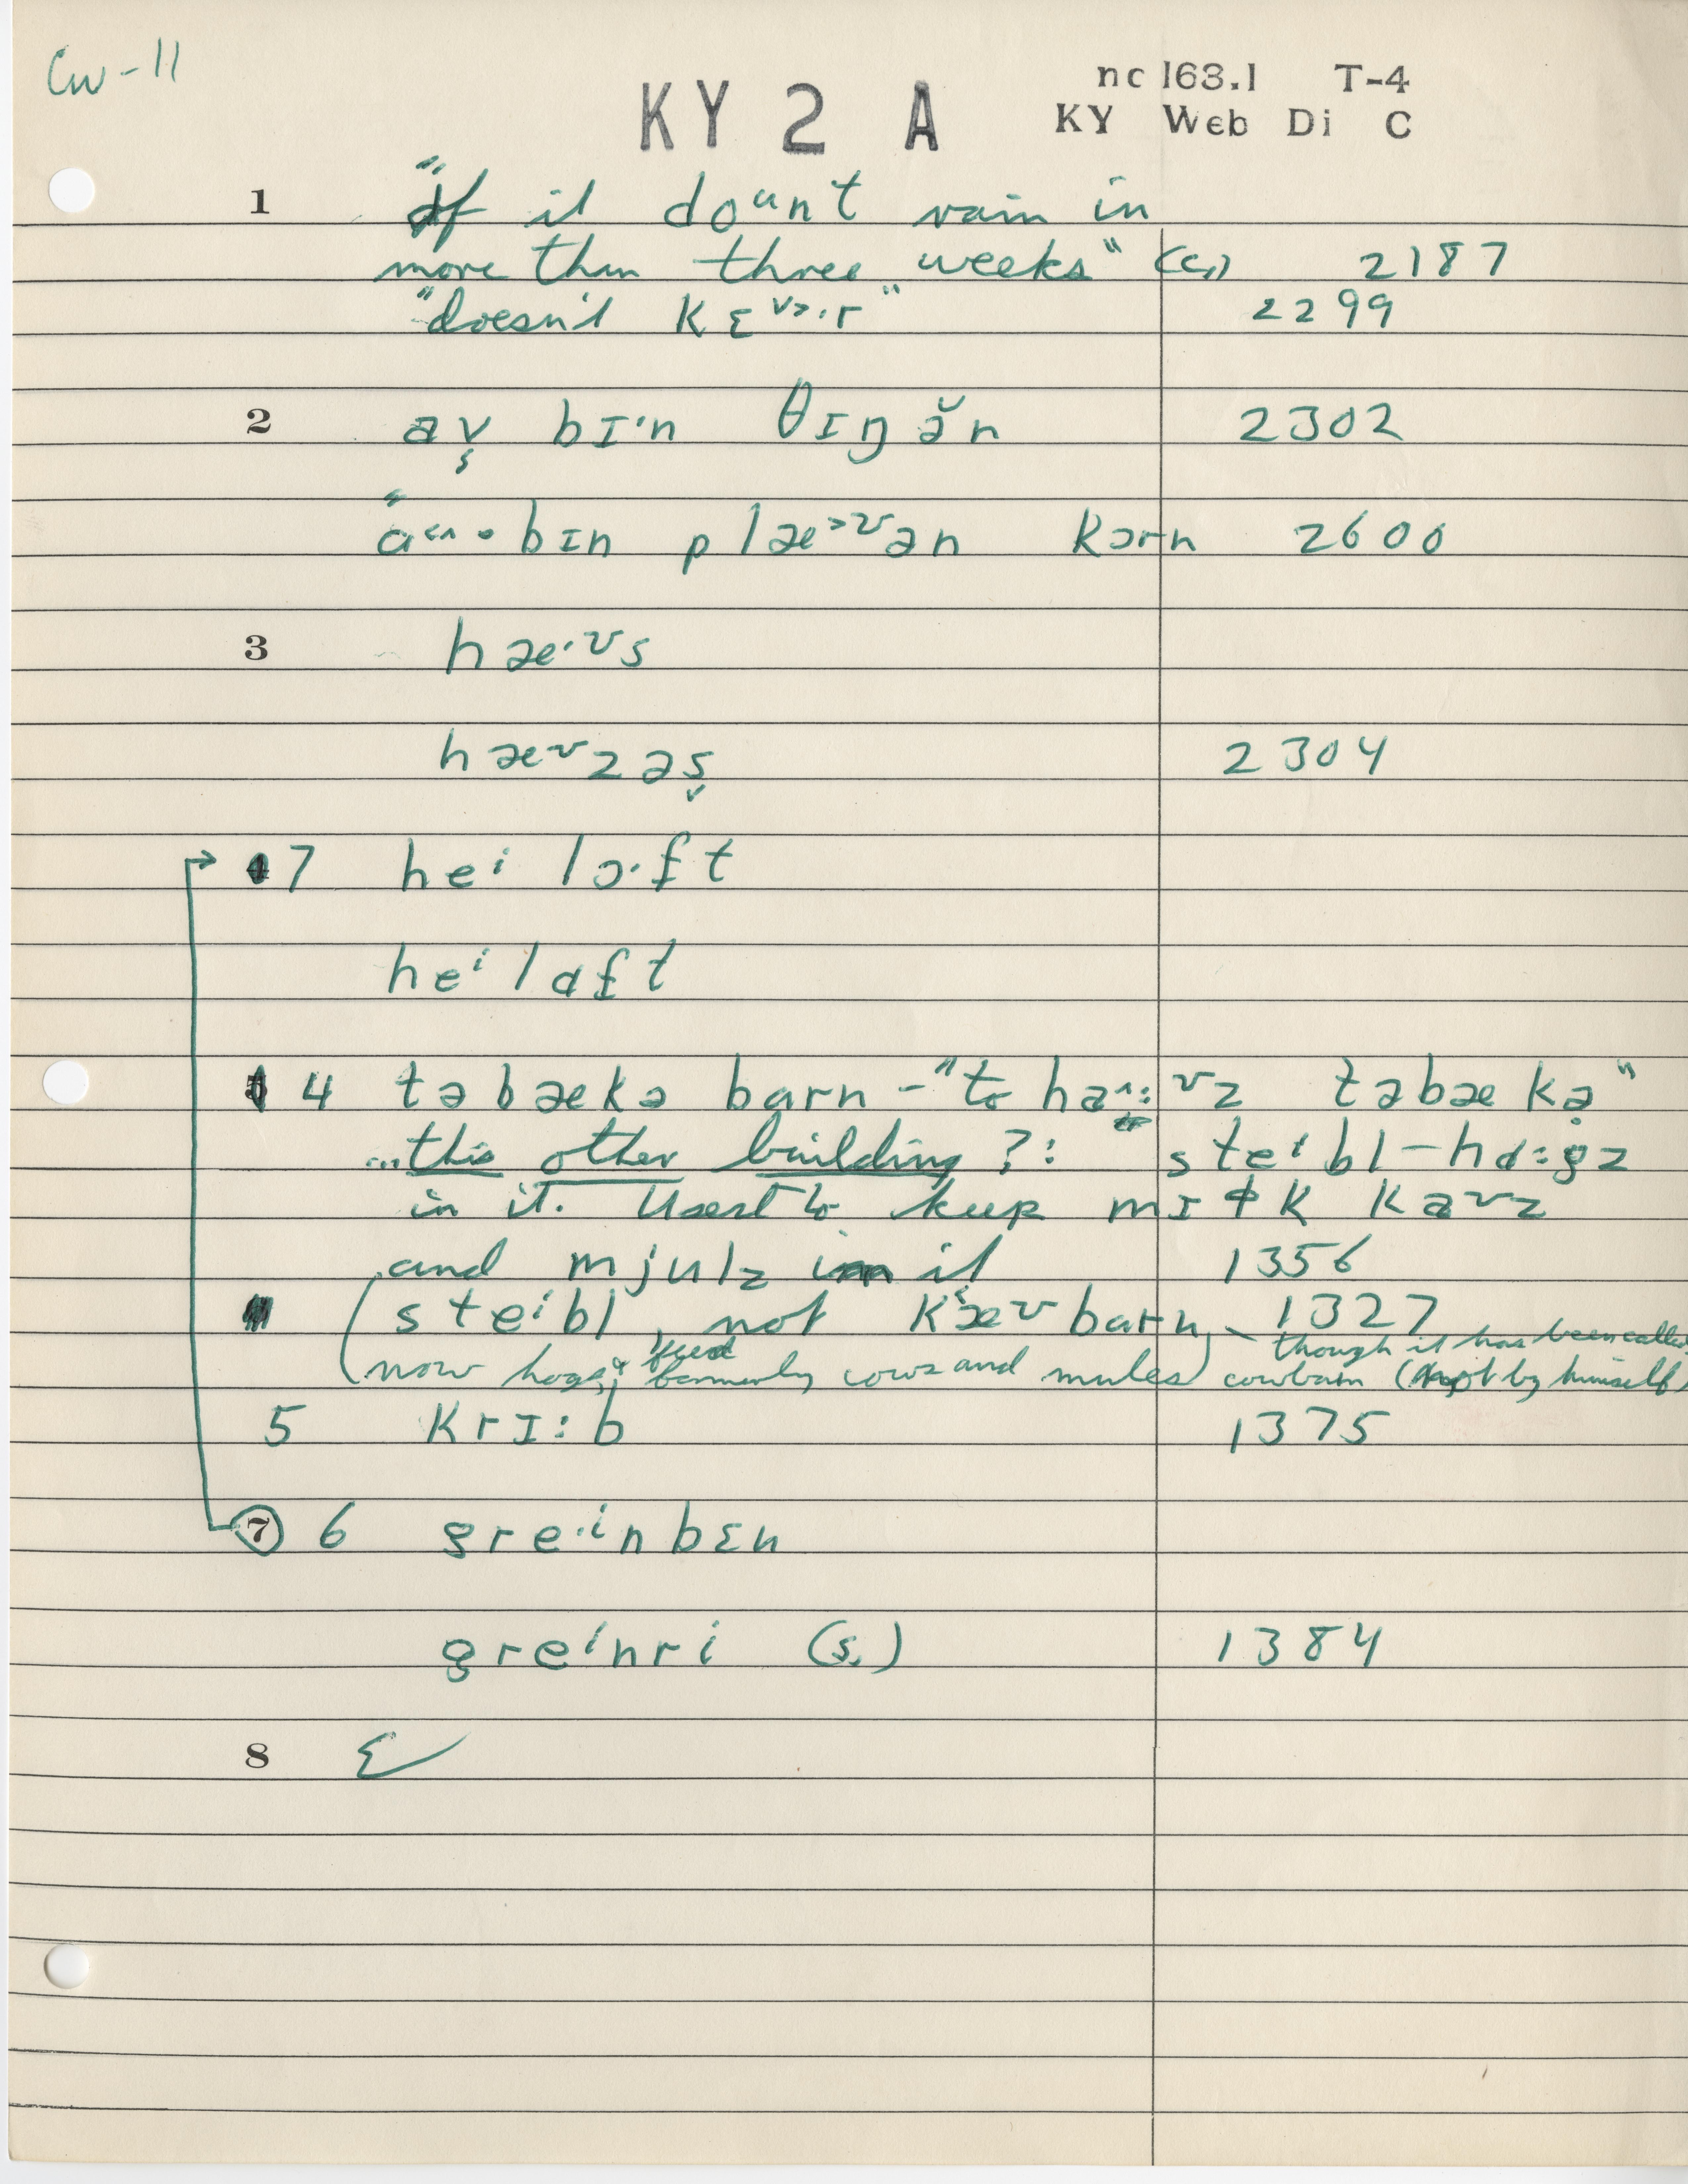 CW-11
KY 2 A
nc 163.1 T-4
KY Web Di C
1 "If it doᵘnt rain in
more than three weeks" (c.) 2187
"doesn't kɛᵛᵊ·r" 2299
2 bɪ·n θɪŋə̆n 2302
bɪn plæ>ʊən kɔrn 2600
3 hæ·ʊs
hæʊzəs̬ 2304
7 heⁱ lɔ·ft
heⁱlɑft
4 təbækə barn - "to təbækə"
...this other building ?: steⁱbl - hɑ:gz
in it. Used to keep mɪɫk kaʊz
and mjulz in it 1356
(steⁱbl, not kæʊbarn, - 1327
though it has been called
now hogs & feed, formerly cows and mules) cowbarn (not by himself)
5 krɪ:b 1375
7 6 gre·ⁱnbɛn
greⁱnri (s.) 1384
8 Σ